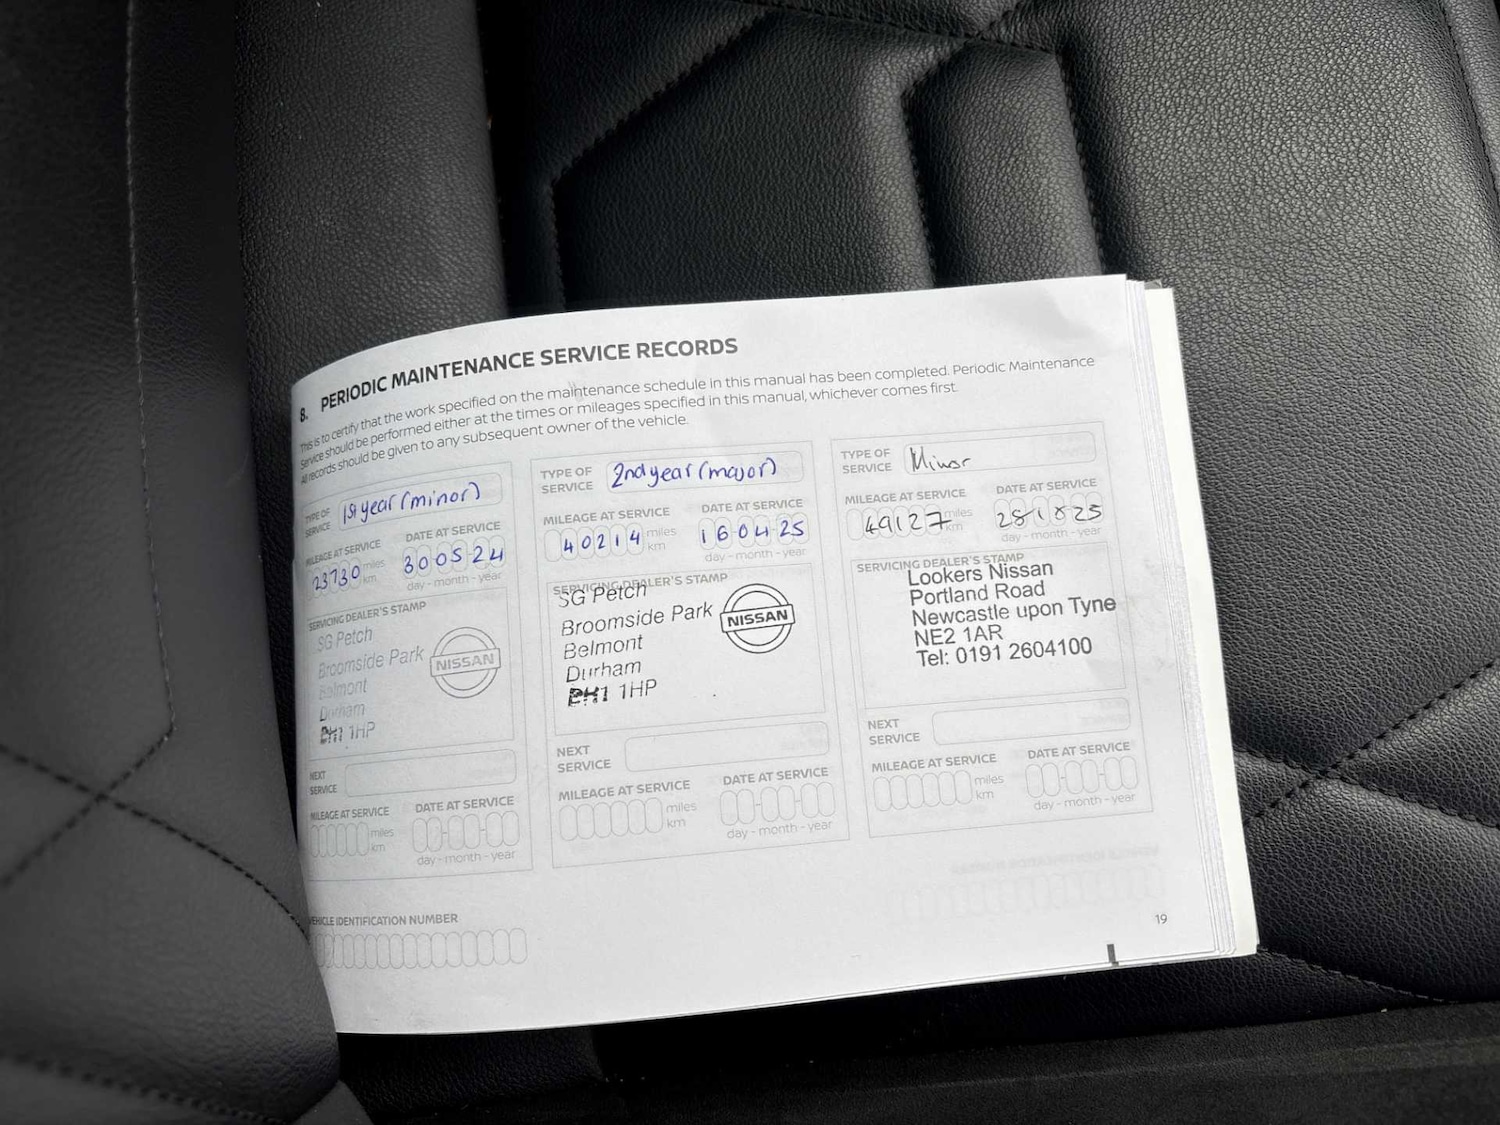 8. PERIODIC MAINTENANCE SERVICE RECORDS
This is to certify that the work specified on the maintenance schedule in this manual has been completed. Periodic Maintenance
Service should be performed either at the times or mileages specified in this manual, whichever comes first.
All records should be given to any subsequent owner of the vehicle.
TYPE OF SERVICE 1st year (minor)
MILEAGE AT SERVICE DATE AT SERVICE
23730 miles km 30 05 24
day - month - year
SERVICING DEALER'S STAMP
SG Petch
Broomside Park
Belmont
Durham
DH1 1HP
NISSAN
NEXT SERVICE
MILEAGE AT SERVICE DATE AT SERVICE
miles km
day - month - year
TYPE OF SERVICE 2nd year (major)
MILEAGE AT SERVICE DATE AT SERVICE
40214 miles km 16 04 25
day - month - year
SERVICING DEALER'S STAMP
SG Petch
Broomside Park
Belmont
Durham
DH1 1HP
NISSAN
NEXT SERVICE
MILEAGE AT SERVICE DATE AT SERVICE
miles km
day - month - year
TYPE OF SERVICE Minor
MILEAGE AT SERVICE DATE AT SERVICE
49127 miles km
day - month - year
SERVICING DEALER'S STAMP
Lookers Nissan
Portland Road
Newcastle upon Tyne
NE2 1AR
Tel: 0191 2604100
NEXT SERVICE
MILEAGE AT SERVICE DATE AT SERVICE
miles km
day - month - year
VEHICLE IDENTIFICATION NUMBER
19